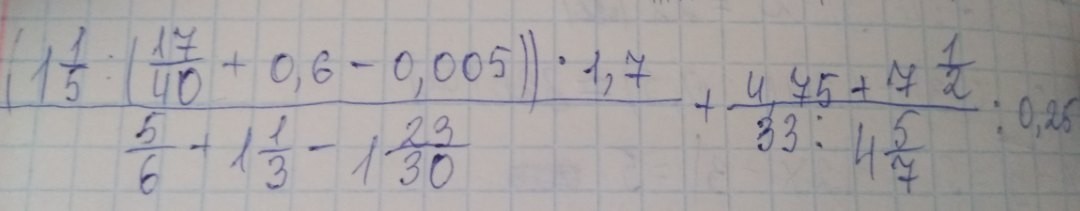 (1 1/5 : (17/40 + 0,6 - 0,005)) · 1,7 / 5/6 + 1 1/3 - 1 23/30 + 4,75 + 7 1/2 / 33 : 4 5/7 : 0,25